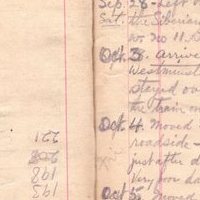 Sep. 28. Left
Sat. the Siberian
no. 11.
Oct 3. Arrive
Westminst
stayed ov
the train on
Oct 4. Moved
roadside
just after d
very poor da
Oct 5. Moved
221
198
193